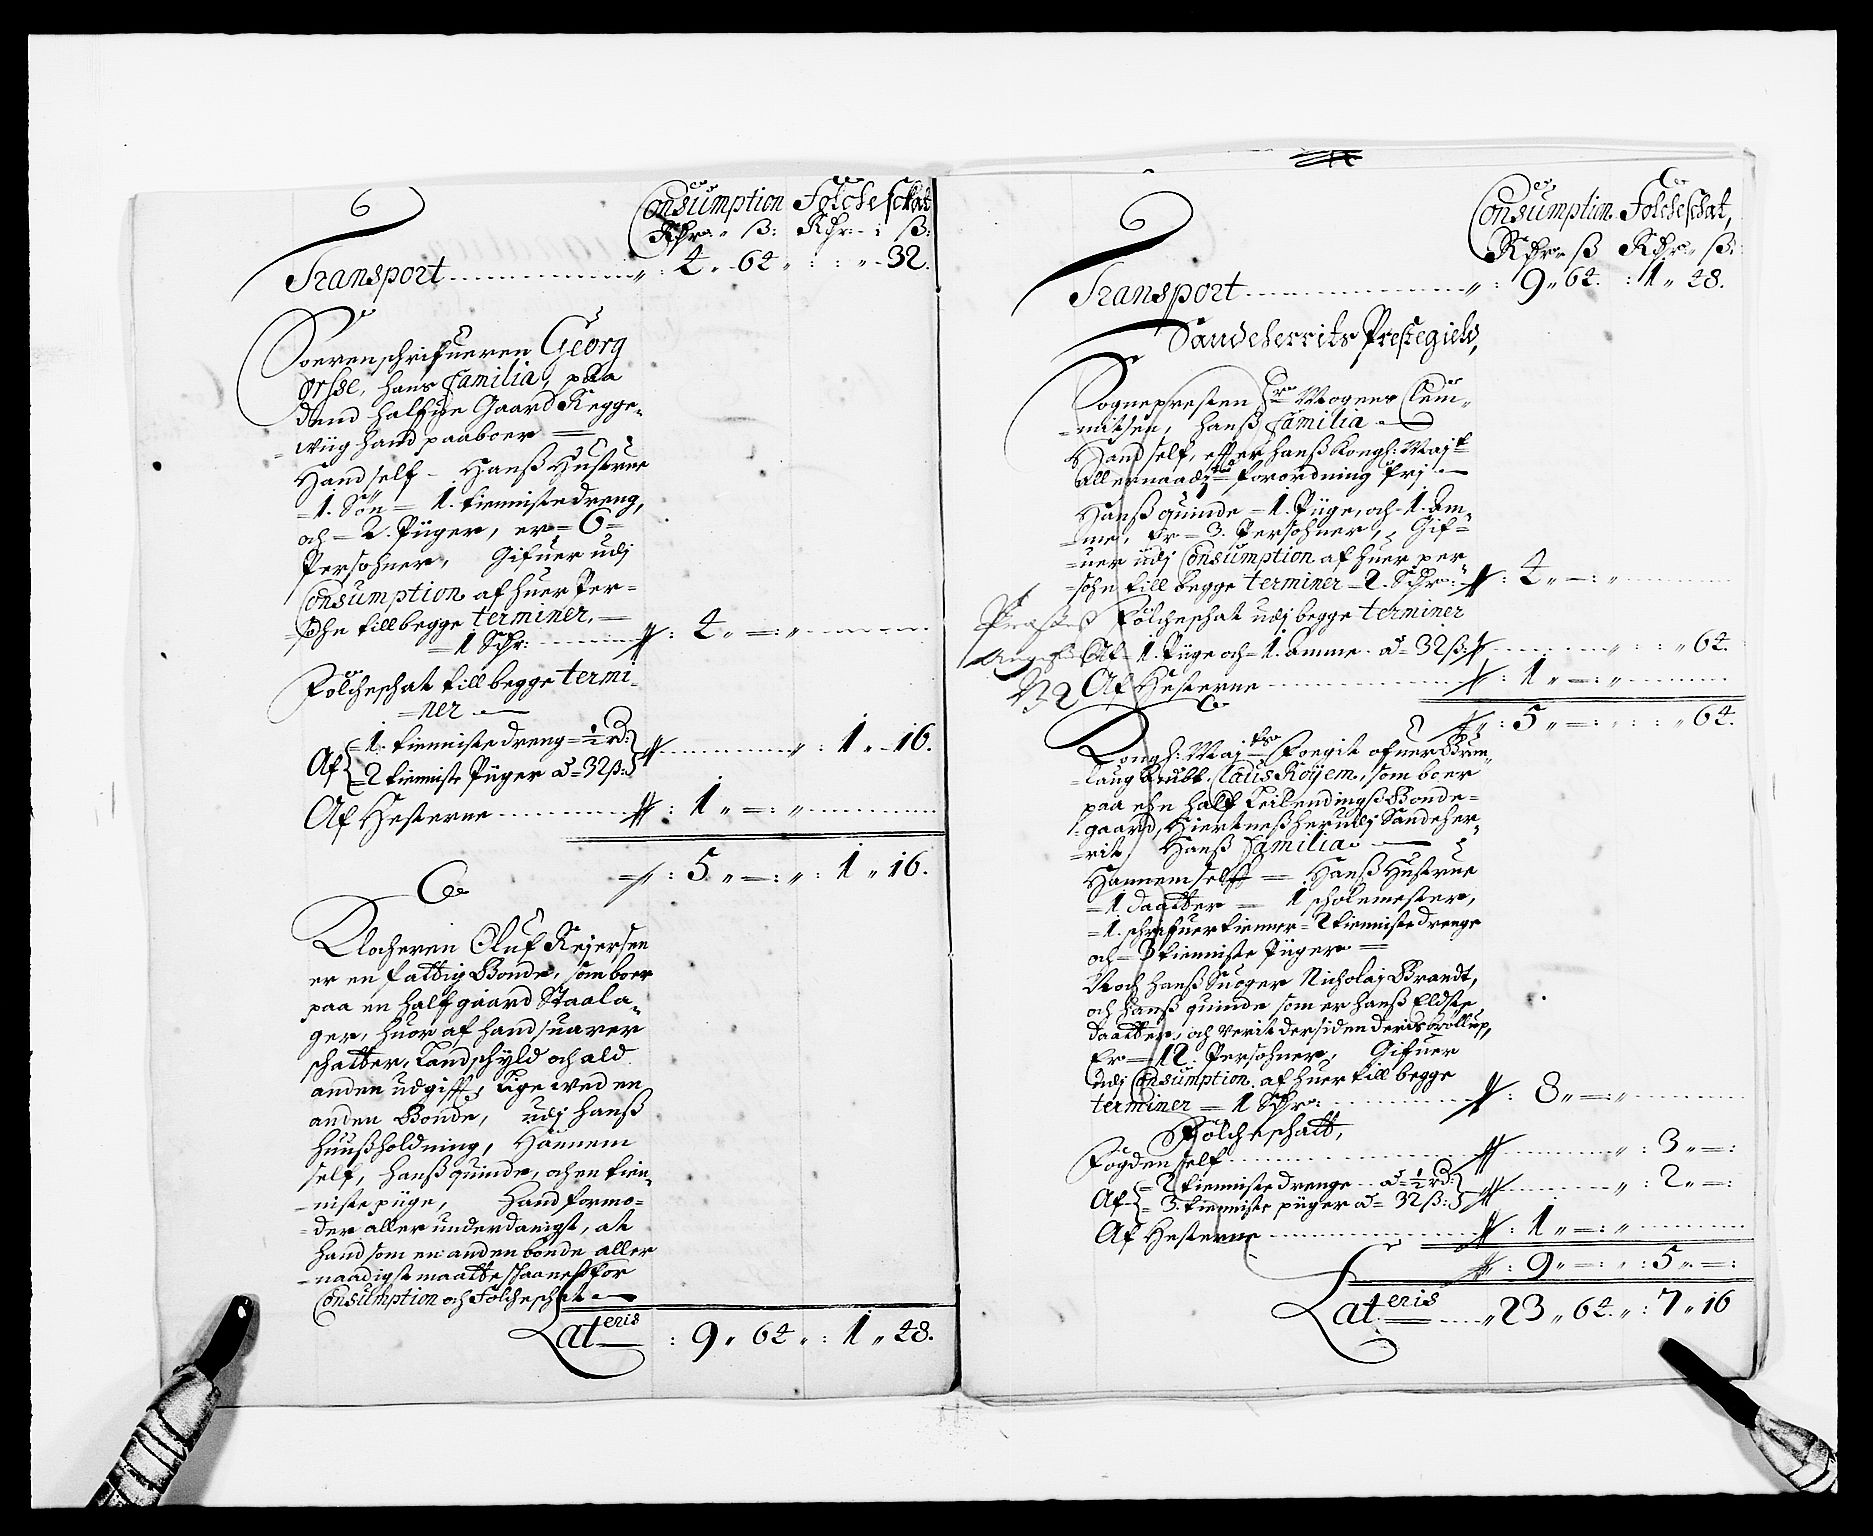 Consumption Folcheschat
Rdr: ß: Rdr: ß:
Transport : 4 „ 64 „ : : „ 32.
Soerenschrifueren Georg
Orsse, hans Familia, paa
dend halfue Gaard Regge-
wiig hand paaboer
Hand self - Hanß Hustrue
1. Sön - 1. tiennistedreng,
och - 2. Piiger, er = 6 =
Persohner, Gifuer udj
Consumption af huer Per-
sohn till begge terminer.
1 Rdr: : 4 „ - : „
Fölcheschat till begge termi-
ner
Af 1. tiennistedreng - ½ rd:
2 tienniste Piiger a = 32 ß: „ : 1 „ 16.
Af Hesterne : 1 „ - : „
: 5 „ - : „ : 1 „ 16.
Klocheren Oluf Reiersen
er en fattig Bonde, som boer
paa en half gaard Staala-
ger, huor af hand suarer
schatter, Landschyld och ald
anden udgifft, Lige wed en
anden Bonde, udj hanß
huußholdning, Hannem
self, hanß quinde, och en tien-
niste piige, Hand formo-
der aller underdanigst, at
hand som en anden bonde aller
naadigst maatte schaaneß for
Consumption och Folcheschat
Lateris : 9 „ 64 „ : 1 „ 48.
Consumption Folcheschat,
Rdr ß Rdr ß:
Transport : 9 „ 64. : 1 „ 48.
Sandeherrits Prestegield,
Sognepresten Hr Mogens Clem-
mitsen, hanß Familia
Hand self, efter hanß Kongl: Maj:t
Allernaadigste forordning frj
Hanß quinde - 1. Piige, och 1. Am-
me, Er - 3. Persohner, Gif-
uer udj Consumption af huer per-
sohn till begge terminer - 2. Rdr: : 4 „ - : „
Fölcheschat udj begge terminer
Af 1. Piige och 1. amme a = 32 ß: „ : : „ 64.
Af Hesterne : 1 „ - : „
: 5 „ - : : „ 64.
Kongl: Maj:ts Foegit ofuer Brun-
laug Claus Röyem, som boer
paa een half Bonde-
gaard, Hiertneß her udj Sandeher-
rit, Hanß Familia
Hannem selff - Hanß Hustrue
1. daatter - 1 scholemester,
1. schrifuer tienner - 2 tiennistedrenge
och - 3 tienniste Piiger
Noch hanß Suoger Nicholaj Brandt,
och hanß quinde som er hanß Eldste
daatter, och Verit der siden deris Bröllup,
Er - 12. Persohner, Gifuer
udj Consumption af huer till begge
terminer - 1 Rdr: : 8 „ - : „
Fölcheschatt,
Fogden self „ : 3 „ - :
Af 2 tienniste drenge a = ½ rd:
3. tienniste piiger a = 32 ß: „ : 2 „ - :
Af Hesterne : 1 „ - : „
: 9 „ - : „ : 5 „ - :
Lateris „ 23 „ 64. „ : 7 „ 16